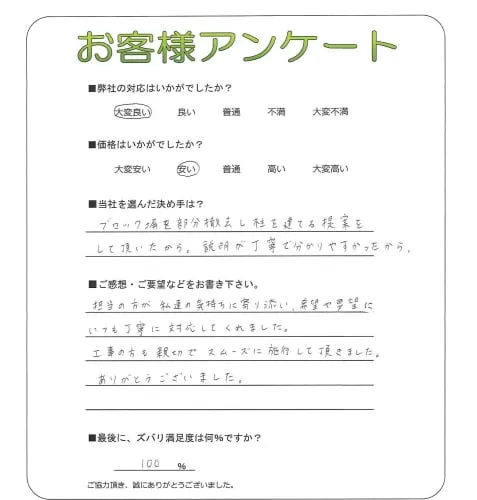 お客様アンケート
■弊社の対応はいかがでしたか？
大変良い 良い 普通 不満 大変不満
■価格はいかがでしたか？
大変安い 安い 普通 高い 大変高い
■当社を選んだ決め手は？
ブロック塀を部分撤去し柱を建てる提案を
して頂いたから。説明が丁寧で分かりやすかったから。
■ご感想・ご要望などをお書き下さい。
担当の方が私達の気持ちに寄り添い、希望や要望に
いつも丁寧に対応してくれました。
工事の方も親切でスムーズに施行して頂きました。
ありがとうございました。
■最後に、ズバリ満足度は何%ですか？
100 %
ご協力頂き、誠にありがとうございました。